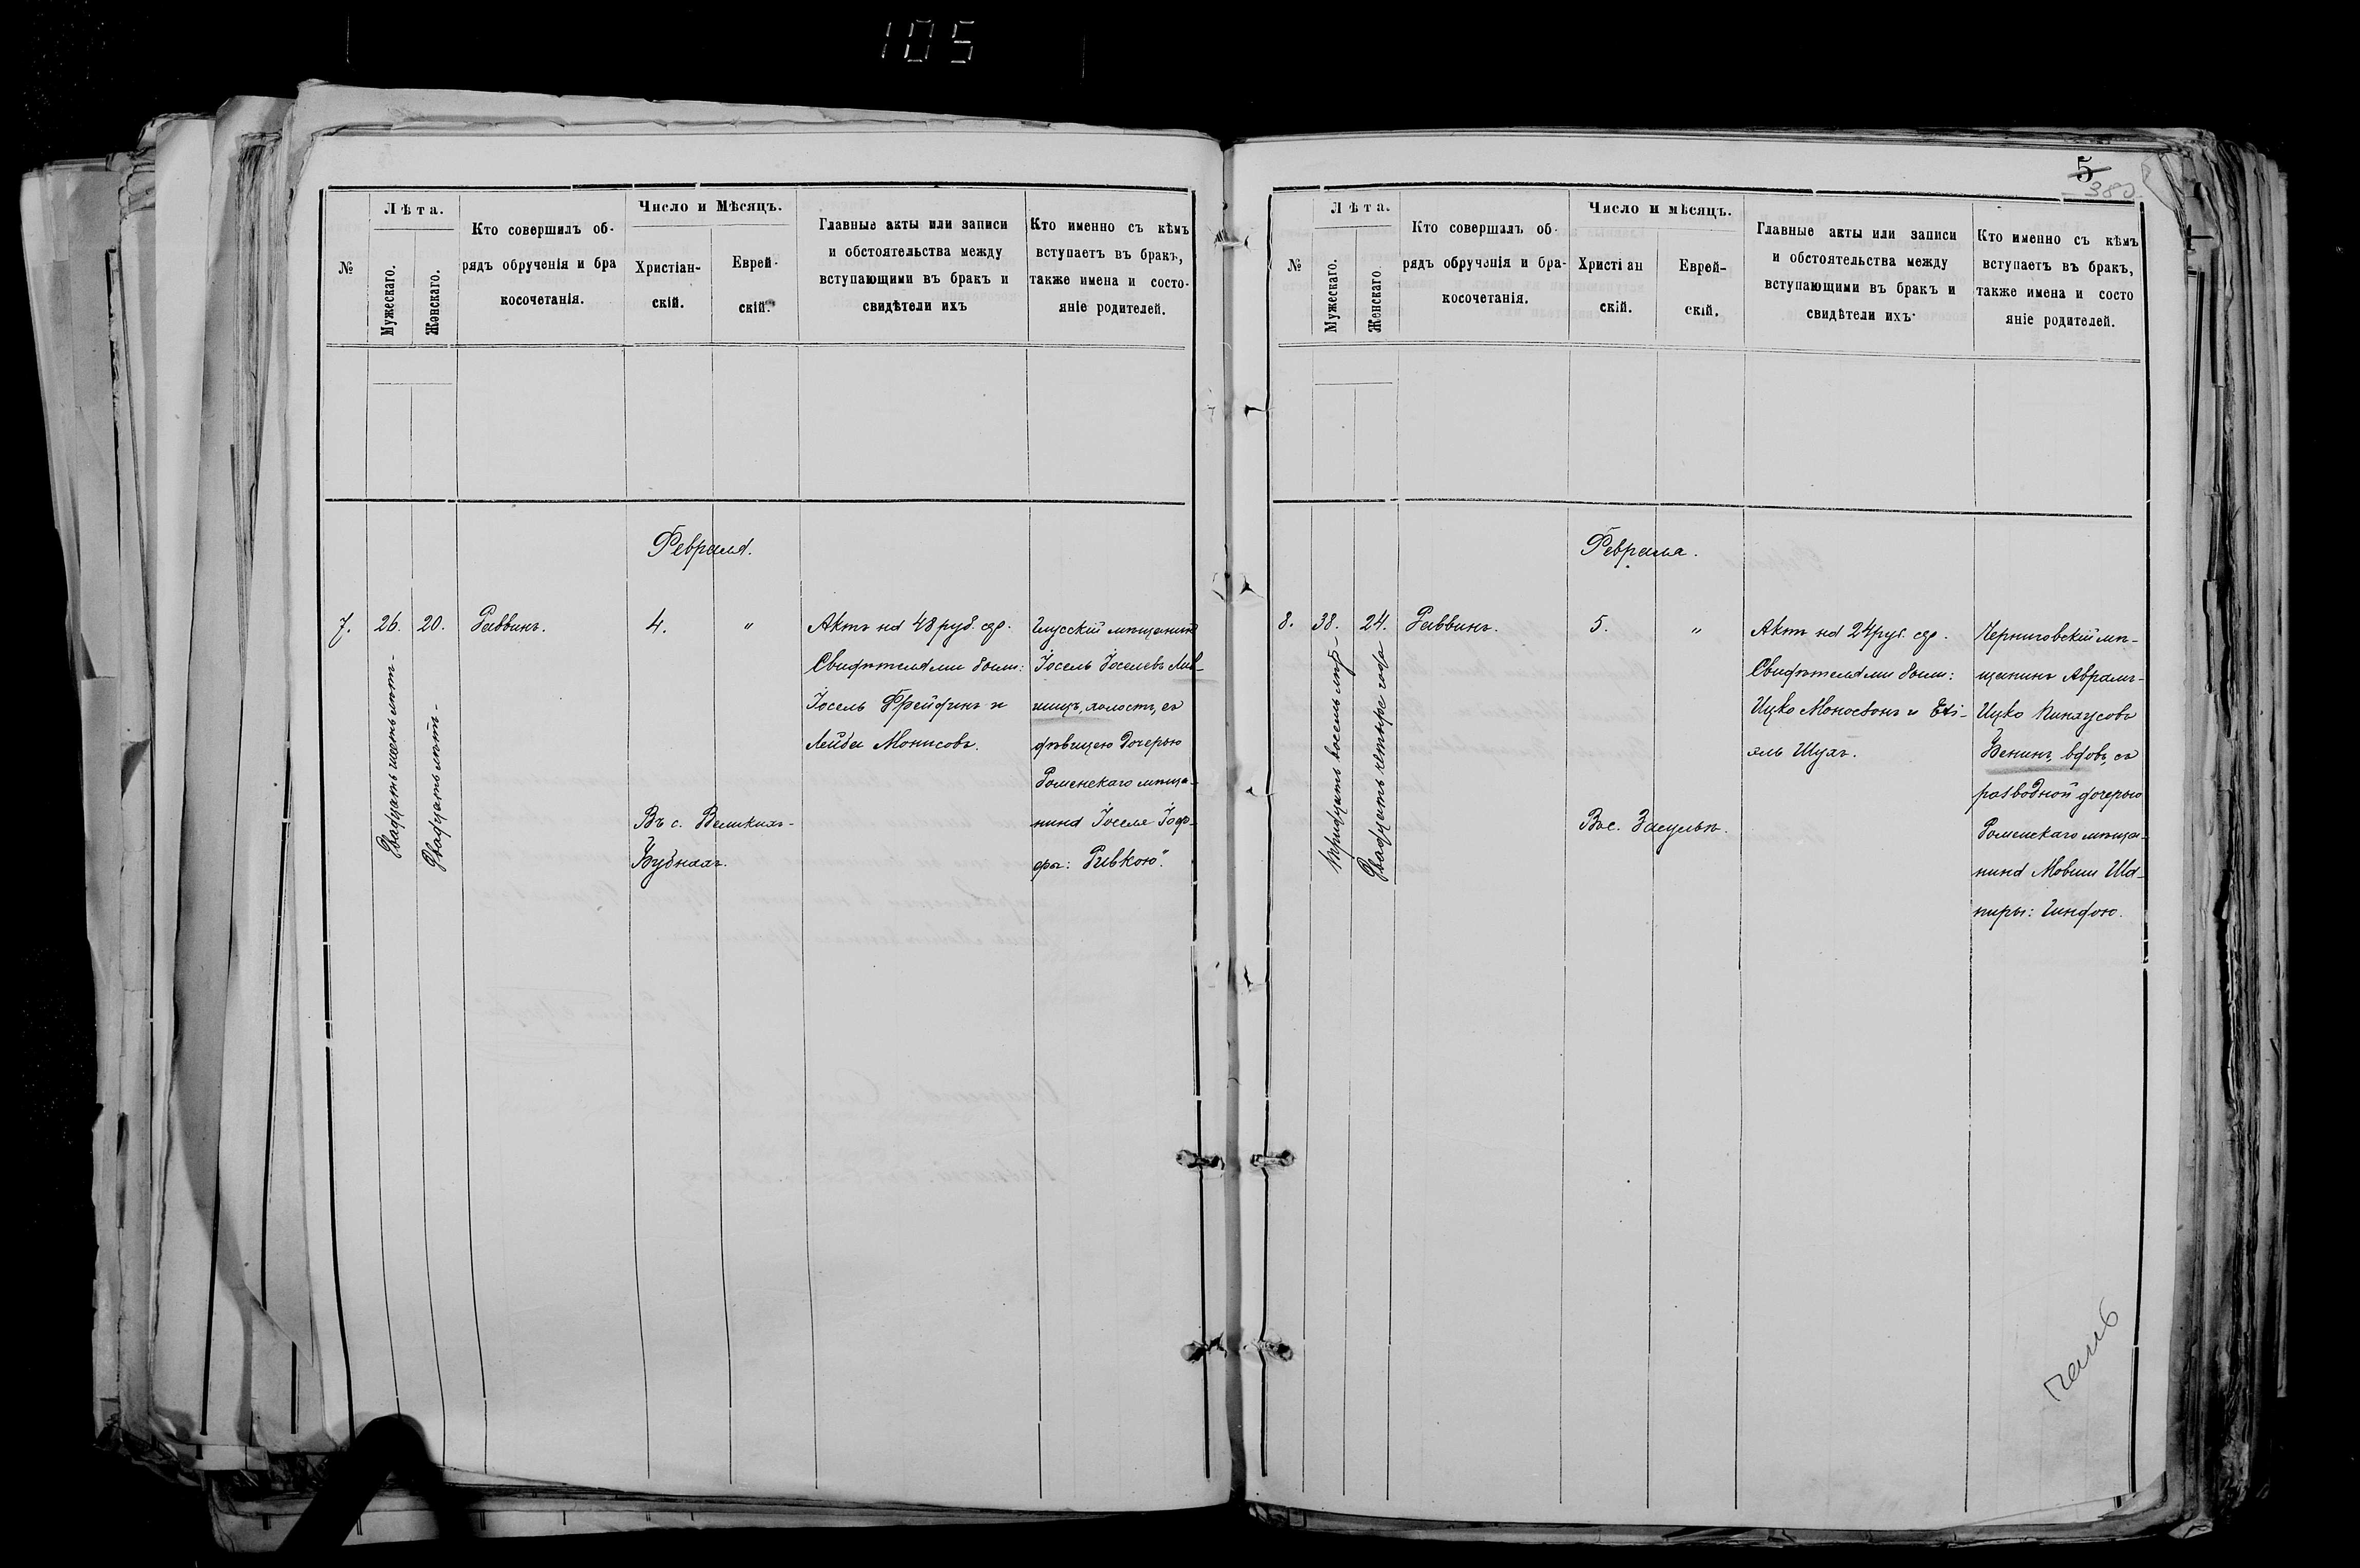 105
№
Лѣта.
Мужескаго.
Женскаго.
Кто совершилъ об-
рядъ обрученія и бра
косочетанія.
Число и Мѣсяцъ.
Христіан-
скій.
Еврей-
скій.
Главные акты или записи
и обстоятельства между
вступающими въ бракъ и
свидѣтели ихъ
Кто именно съ кѣмъ
вступаетъ въ бракъ,
также имена и состо-
яніе родителей.
Февраля.
7.
26.
Двадцать шесть лѣтъ-
20.
Двадцать лѣтъ-
Раввинъ.
4.
"
Въ с. Великихъ-
Бубнахъ.
Актъ на 48 руб. сер.
Свидѣтелями были:
Іосель Фрейдинъ и
Лейба Монисовъ.
мѣщанинъ
Іосель Іоселевъ
холостъ, съ
дѣвицею дочерью
Роменскаго мѣща-
нина Іоселя
Ривкою".
5
380
№
Лѣта.
Мужескаго.
Женскаго.
Кто совершалъ об-
рядъ обрученія и бра-
косочетанія.
Число и мѣсяцъ.
Христі ан
скій.
Еврей-
скій.
Главные акты или записи
и обстоятельства между
вступающими въ бракъ и
свидѣтели ихъ
Кто именно съ кѣмъ
вступаетъ въ бракъ,
также имена и состо
яніе родителей.
Февраля.
8.
38.
Тридцать восемь лѣтъ-
24.
Двадцать четыре года
Раввинъ.
5.
"
Въ с. Засульѣ.
Актъ на 24 руб. сер.
Свидѣтелями были:
Ицко Моносзонъ и
Шухъ.
Черниговскій мѣ-
щанинъ Абрамъ-
Ицко Пинхусовъ
Бенинъ, вдовъ, съ
разводной дочерью
Роменскаго мѣща-
нина Мовши Ша-
пиры: Гиндою.